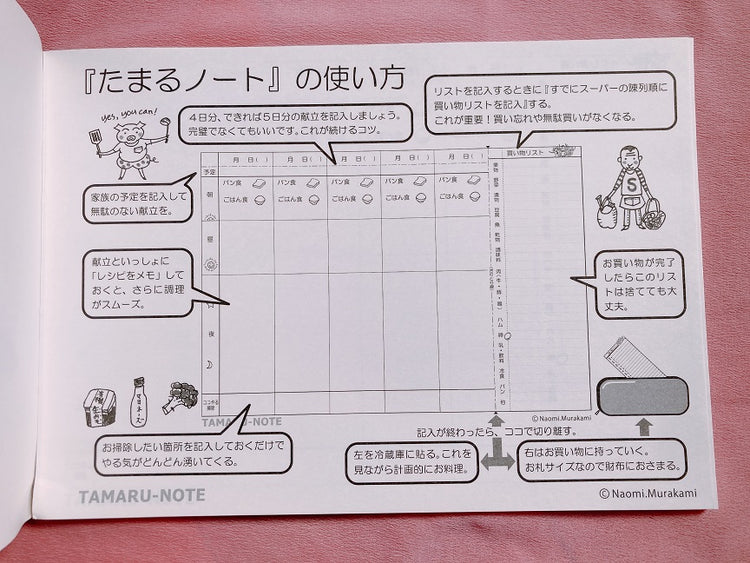 『たまるノート』の使い方
yes, you can!
４日分、できれば５日分の献立を記入しましょう。
完璧でなくてもいいです。これが続けるコツ。
リストを記入するときに『すでにスーパーの陳列順に
買い物リストを記入』する。
これが重要！買い忘れや無駄買いがなくなる。
家族の予定を記入して
無駄のない献立を。
献立といっしょに
「レシピをメモ」して
おくと、さらに調理
がスムーズ。
月　日(　)　月　日(　)　月　日(　)　月　日(　)　月　日(　)
買い物リスト
予定
朝
パン食　パン食　パン食　パン食　パン食
ごはん食　ごはん食　ごはん食　ごはん食　ごはん食
昼
夜
果物　野菜　漬物　豆腐　魚　乾物　調味料　肉（牛・豚・鶏）　ハム　卵　乳・飲料　冷食　パン　他
S
お買い物が完了
したらこのリス
トは捨てても大
丈夫。
マヨネーズ
TAMARU-NOTE
©Naomi.Murakami
お掃除したい箇所を記入しておくだけで
やる気がどんどん湧いてくる。
記入が終わったら、ココで切り離す。
左を冷蔵庫に貼る。これを
見ながら計画的にお料理。
右はお買い物に持っていく。
お札サイズなので財布におさまる。
TAMARU-NOTE
©Naomi.Murakami